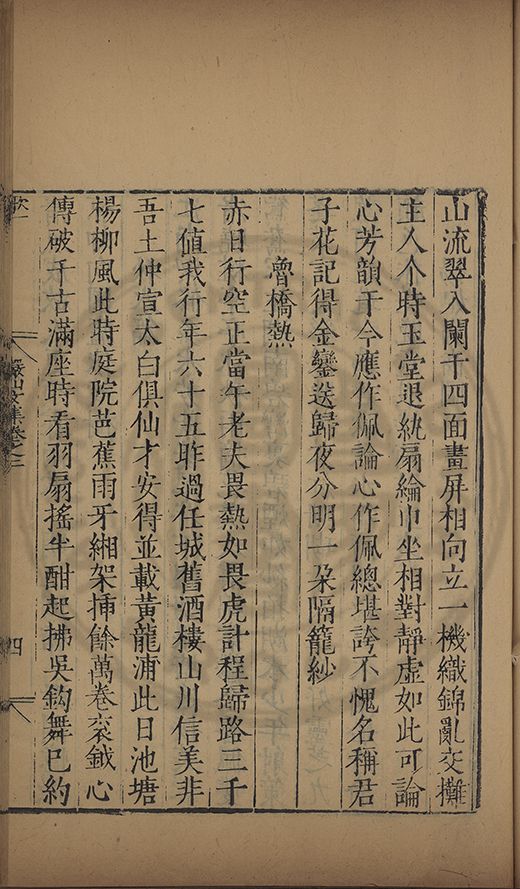 山流翠入闌干四面畫屏相向立一機織錦亂交攤
主人个時玉堂退紈扇綸巾坐相對靜虛如此可論
心芳韻于今應作佩論心作佩總堪誇不愧名稱君
子花記得金鑾送歸夜分明一朵隔籠紗
魯橋熱
赤日行空正當午老夫畏熱如畏虎計程歸路三千
七値我行年六十五昨過任城舊酒樓山川信美非
吾土仲宣太白俱仙才安得並載黃龍浦此日池塘
楊柳風此時庭院芭蕉雨牙緗架揷餘萬卷袠鉞心
傳破千古滿座時看羽扇搖半酣起拂吳鈎舞已約
儼山文集卷之二
四